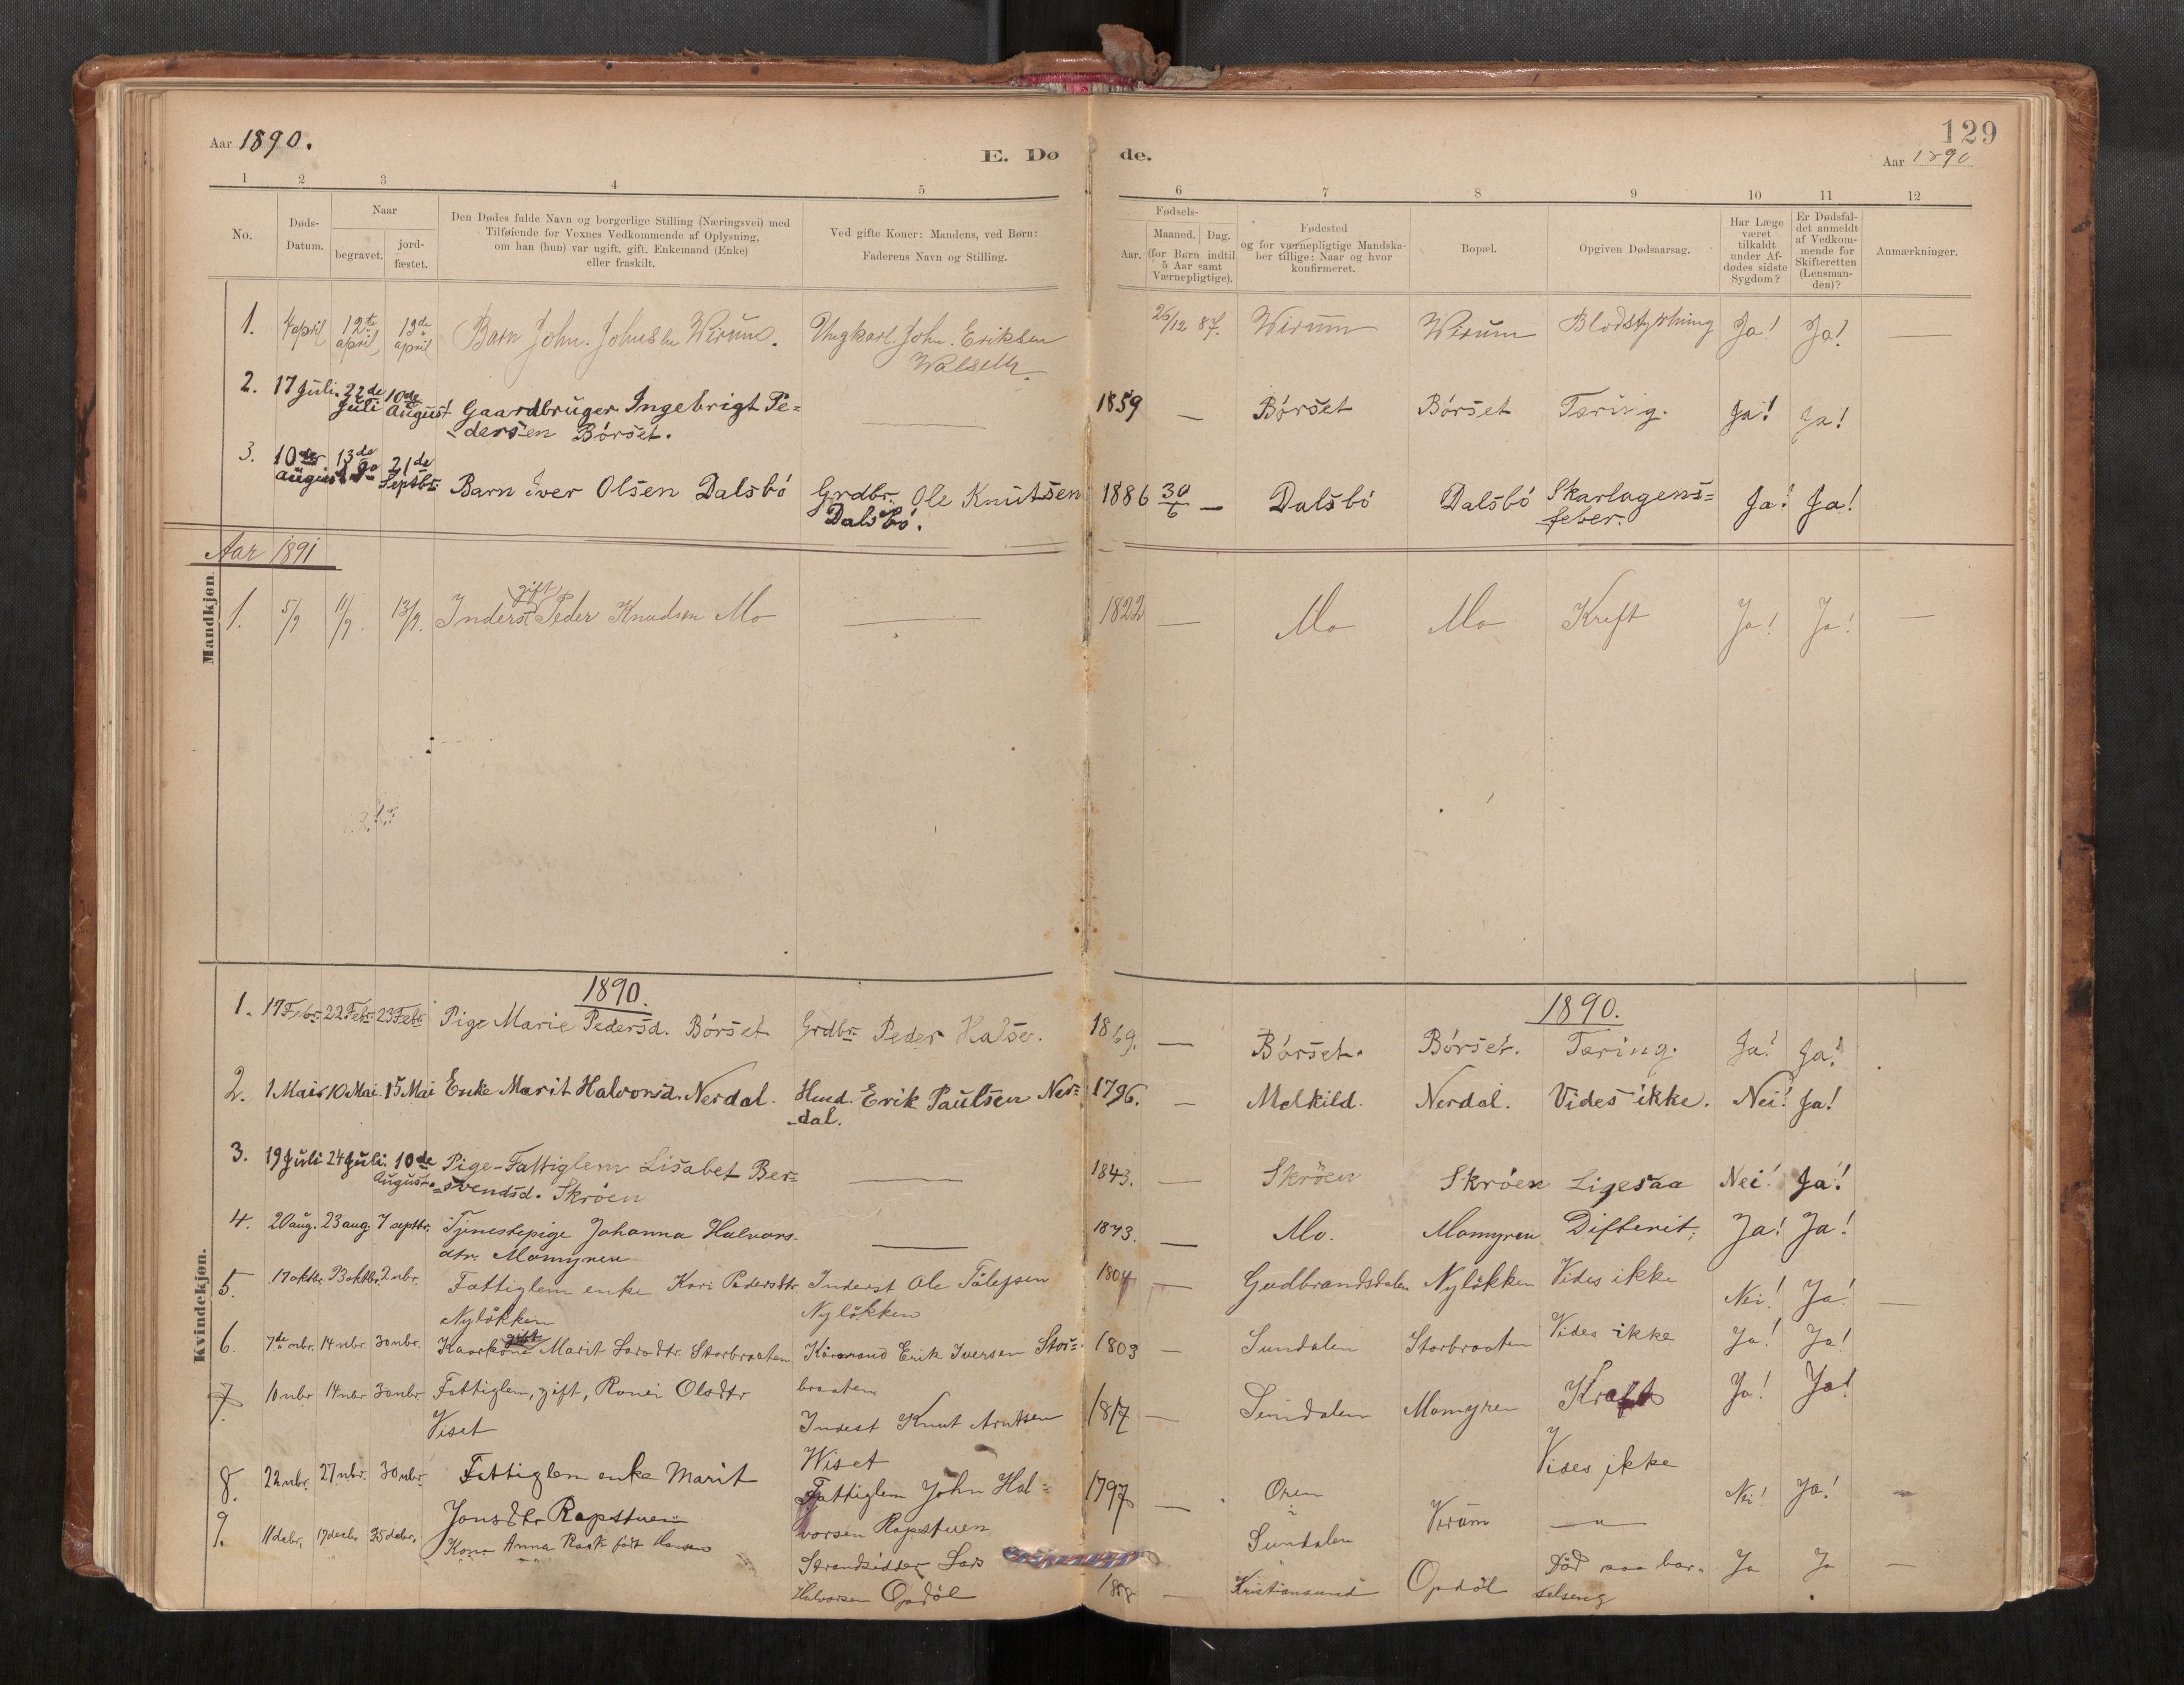 129
Aar 1890.
E. Dø de.
Aar 1890
1 2 3 4 5 6 7 8 9 10 11 12
No.
Døds-Datum.
Naar
begravet.
jord-
fæstet.
Den Dødes fulde Navn og borgerlige Stilling (Næringsvei) med
Tilføiende for Voxnes Vedkommende af Oplysning,
om han (hun) var ugift, gift, Enkemand (Enke)
eller fraskilt.
Ved gifte Koner: Mandens, ved Børn:
Faderens Navn og Stilling.
Fødsels-
Aar. Maaned. Dag.
(for Børn indtil
5 Aar samt
Værnepligtige).
Fødested
og for værnepligtige Mandska-
ber tillige: Naar og hvor
konfirmeret.
Bopæl.
Opgiven Dødsaarsag.
Har Læge
været
tilkaldt
under Af-
dødes sidste
Sygdom?
Er Dødsfal-
det anmeldt
af Vedkom-
mende for
Skifteretten
(Lensman-
den)?
Anmærkninger.
Mandkjøn.
1. 4 april 12te april 13de april Barn John. Johnsen Wirum. Ungkarl. John. Eriksen 26/12 87. Wirum Wirum Blodstyrtning Ja! Ja! —
2. 17 Juli. 22de Juli 10de August Gaardbruger Ingebrigt Pe=
dersen Börset. — 1859 — Börset Börset Tæring. Ja! Ja!
3. 10de August 13de 21de Septbr. Barn Iver Olsen Dalsbö Grdbr. Ole Knutsen
Dalsbö. 1886 30/6 — Dalsbö Dalsbö Skarlagens=
feber. Ja! Ja!
Aar 1891
1. 5/9 11/9. 13/9. Inderst gift Peder Knudsen Mo — 1822 — Mo Mo Kreft Ja! Ja! —
Kvindekjøn.
1890. 1890.
1. 17 Febr. 22 Febr. 23 Febr. Pige Marie Pedersd. Börset Grdbr. Peder Halse. 1869. — Börset. Börset. Tæring. Ja! Ja!
2. 1 Mai 10 Mai. 15 Mai Enke Marit Halvorsd. Nerdal. Hmd. Erik Paulsen Ner=
dal. 1796. — Melkild. Nerdal. Vides ikke. Nei! Ja!
3. 19 Juli 24 Juli. 10de August. Pige-Fattiglem Lisabet Ber=
svendsd. Skröen — 1843. — Skröen Skröen Ligesaa Nei! Ja!
4. 20 aug. 23 aug. 7 septbr. Tjenestepige Johanna Halvors-
dtr. Momyren — 1873. — Mo. Momyren Difterit, Ja! Ja!
5. 17 oktbr. 23 oktbr. 2 nbr. Fattiglem enke Kari Pedersdtr.
Nylökken Inderst Ole Tölefsen
Nylökken 1804 — Gudbrandsdalen Nylökken Vides ikke Nei! Ja! —
6. 7de nbr. 14 nbr. 30 nbr. Kaarkone gift Marit Larsdtr. Storbraaten Kårmand Erik Iversen Stor=
braaten 1803 — Sundalen Storbraaten Vides ikke Ja! Ja!
7. 10 nbr. 14 nbr 30 nbr. Fattiglem, gift, Ronei Olsdtr
Viset Indest Knut Arntsen
Wiset 1817 — Sundalen Momyren Kræft Ja! Ja!
8. 22 nbr. 27 nbr. 30 nbr. Fattiglem enke Marit
Jonsdtr Rapstuen Fattiglem John Hal=
vorsen Rapstuen 1797 — Oren
Sundalen Virum Vides ikke Nei! Ja! —
9. 11 dcbr. 17 decbr 25 dcbr. Kone Anna født Hansen Strandsidder Lars
Halvorsen Opdöl — Kristiansund Opdöl Död paa bar-
selseng Ja Ja —